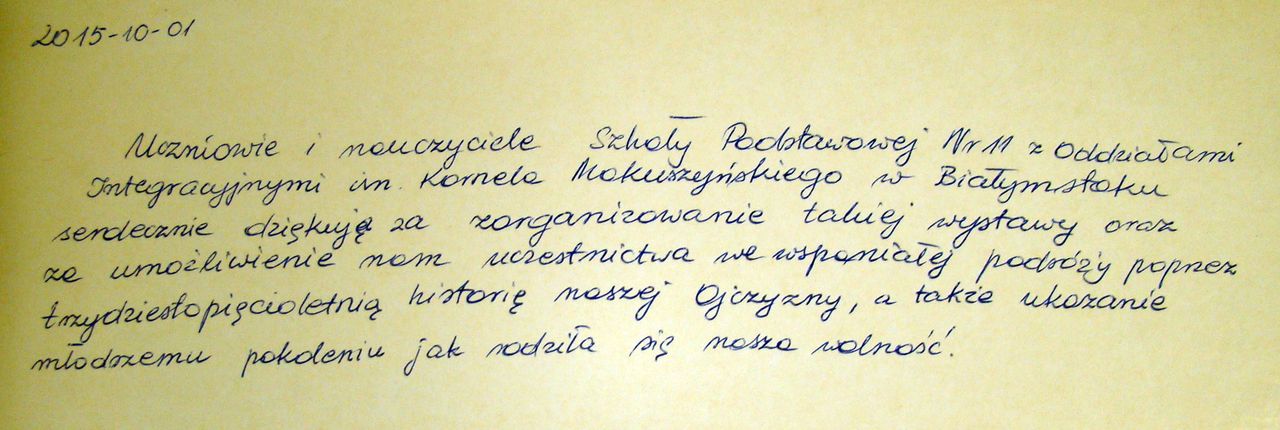 2015-10-01
Uczniowie i nauczyciele Szkoły Podstawowej Nr 11 z Oddziałami
Integracyjnymi im. Kornela Makuszyńskiego w Białymstoku
serdecznie dziękują za zorganizowanie takiej wystawy oraz
za umożliwienie nam uczestnictwa we wspaniałej podróży poprzez
trzydziestopięcioletnią historię naszej Ojczyzny, a także ukazanie
młodszemu pokoleniu jak rodziła się nasza wolność.